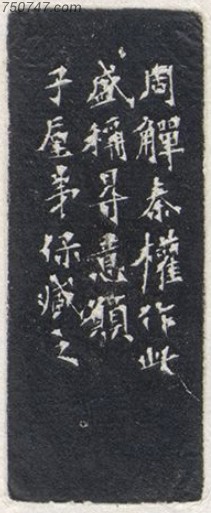 750747.com
周觶秦權作此
盛稱尋意顥
子屋弟保臧之